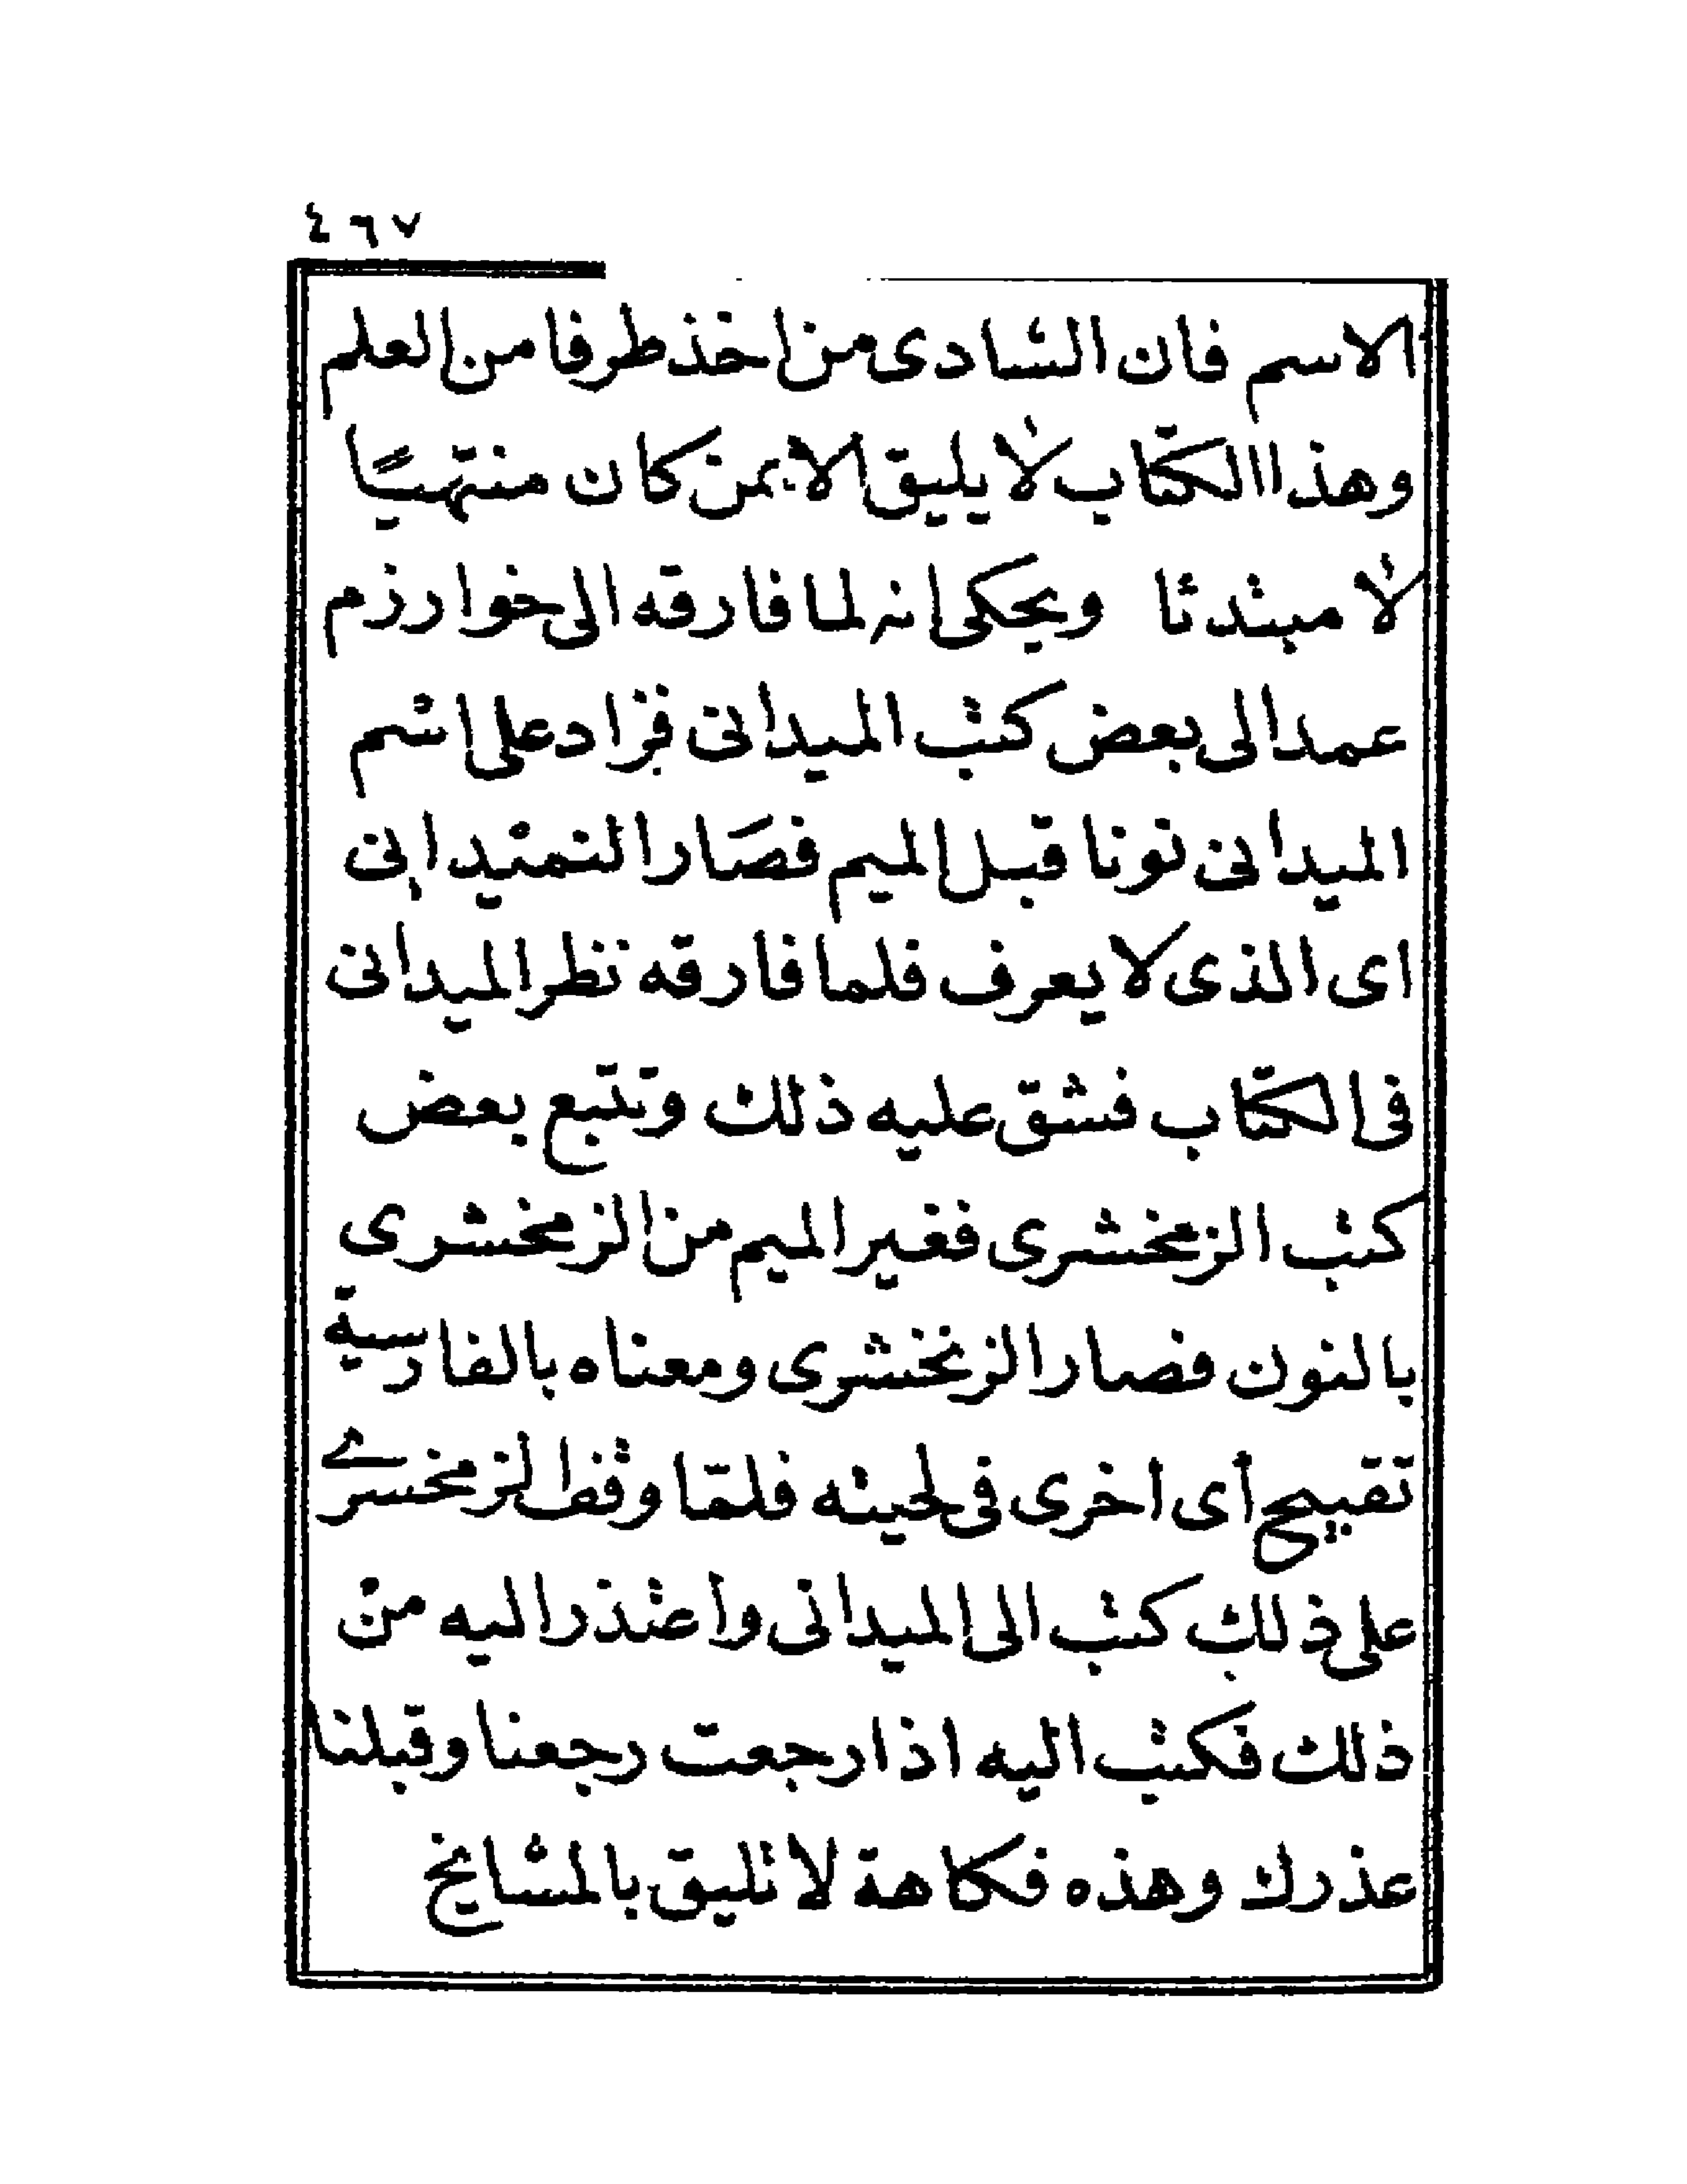 ٤٦٧
الاسم فان الشادى من اخذ طرفا من العلم
وهذا الكتاب لا يليق الا بمن كان منتهيًا
لا مبتدئا ويحكى انه لما فارقه الى خوارزم
عمد الى بعض كتب الميدانى فزاد على اسم
الميدانى نونا قبل الميم فصار النميدانى
اى الذى لا يعرف فلما فارقه نظر الميدانى
فى الكتاب فشق عليه ذلك وتتبع بعض
كتب الزمخشرى فغير الميم من الزمخشرى
بالنون فصار الزنخشرى ومعناه بالفارسية
تقبيح أى اخرى فى لحيته فلمّا وقف الزمخشرى
على ذلك كتب الى الميدانى واعتذر اليه من
ذلك فكتب اليه اذا رجعت رجعنا وقبلنا
عذرك وهذه فكاهة لا تليق بالمشايخ